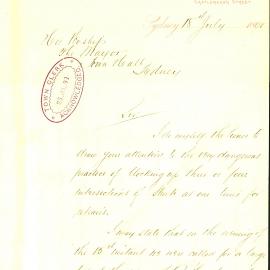 Sydney 15th July
His Worship
The Mayor
Town Hall
Sydney
TOWN CLERK
ACKNOWLEDGED
Sir
I do myself the honor to
draw your attention to the very dangerous
practice of blocking up three or four
intersections of Streets at one time for
repairs.
I may state that on the evening of
the 13th instant we were called for a large